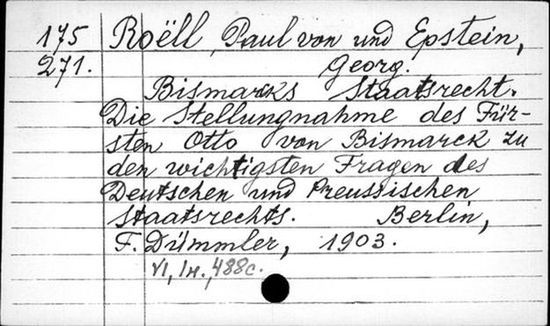 175 Roëll, Paul von und Epstein,
271. Georg.
Bismarcks Staatsrecht.
Die Stellungnahme des Für-
sten Otto von Bismarck zu
den wichtigsten Fragen des
Deutschen und Preussischen
Staatsrechts. Berlin,
F. Dümmler, 1903.
VI, 488c.